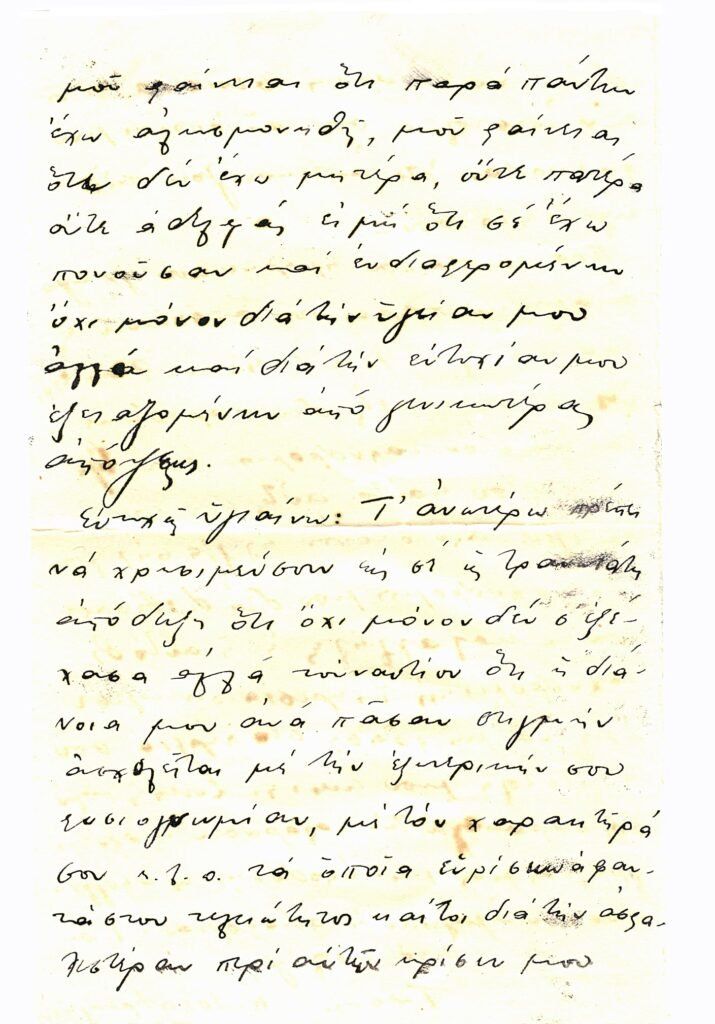 μοῦ φαίνεται ὅτι παρά πάντων
ἔχω λησμονηθῆ, μοῦ φαίνεται
ὅτι δέν ἔχω μητέρα, οὔτε πατέρα
οὔτε ἀδελφάς εἰ μή ὅτι σέ ἔχω
πονοῦσαν καί ἐνδιαφερομένην
ὄχι μόνον διά τήν ὑγείαν μου
ἀλλά καί διά τήν εὐτυχίαν μου
ἐξεταζομένην ἀπό γενικωτέρας
ἀπόψεως.
Εὐτυχῶς ὑγιαίνω: Τ' ἀνωτέρω πρέπει
νά χρησιμεύσουν εἰς σέ ὡς τρανωτάτη
ἀπόδειξη ὅτι ὄχι μόνον δέν σ' ἐξέ-
χασα ἀλλά τοὐναντίον ὅτι ἡ διά-
νοια μου ἀνά πᾶσαν στιγμήν
ἀσχολεῖται μέ τήν ἐξωτερικήν σου
φυσιογνωμίαν, μέ τόν χαρακτῆρά
σου κ.τ.λ. τά ὁποῖα εὑρίσκω ἀφαν-
τάστου τελειότητος καίτοι διά τήν ἀσφα-
λεστέραν περί αὐτῶν κρίσιν μου